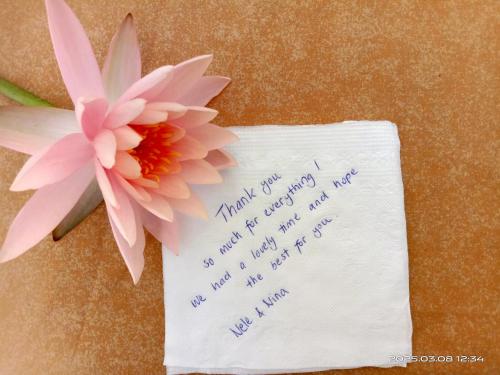 Thank you
so much for everything!
We had a lovely time and hope
the best for you.
Nele & Nina
2025.03.08 12:34